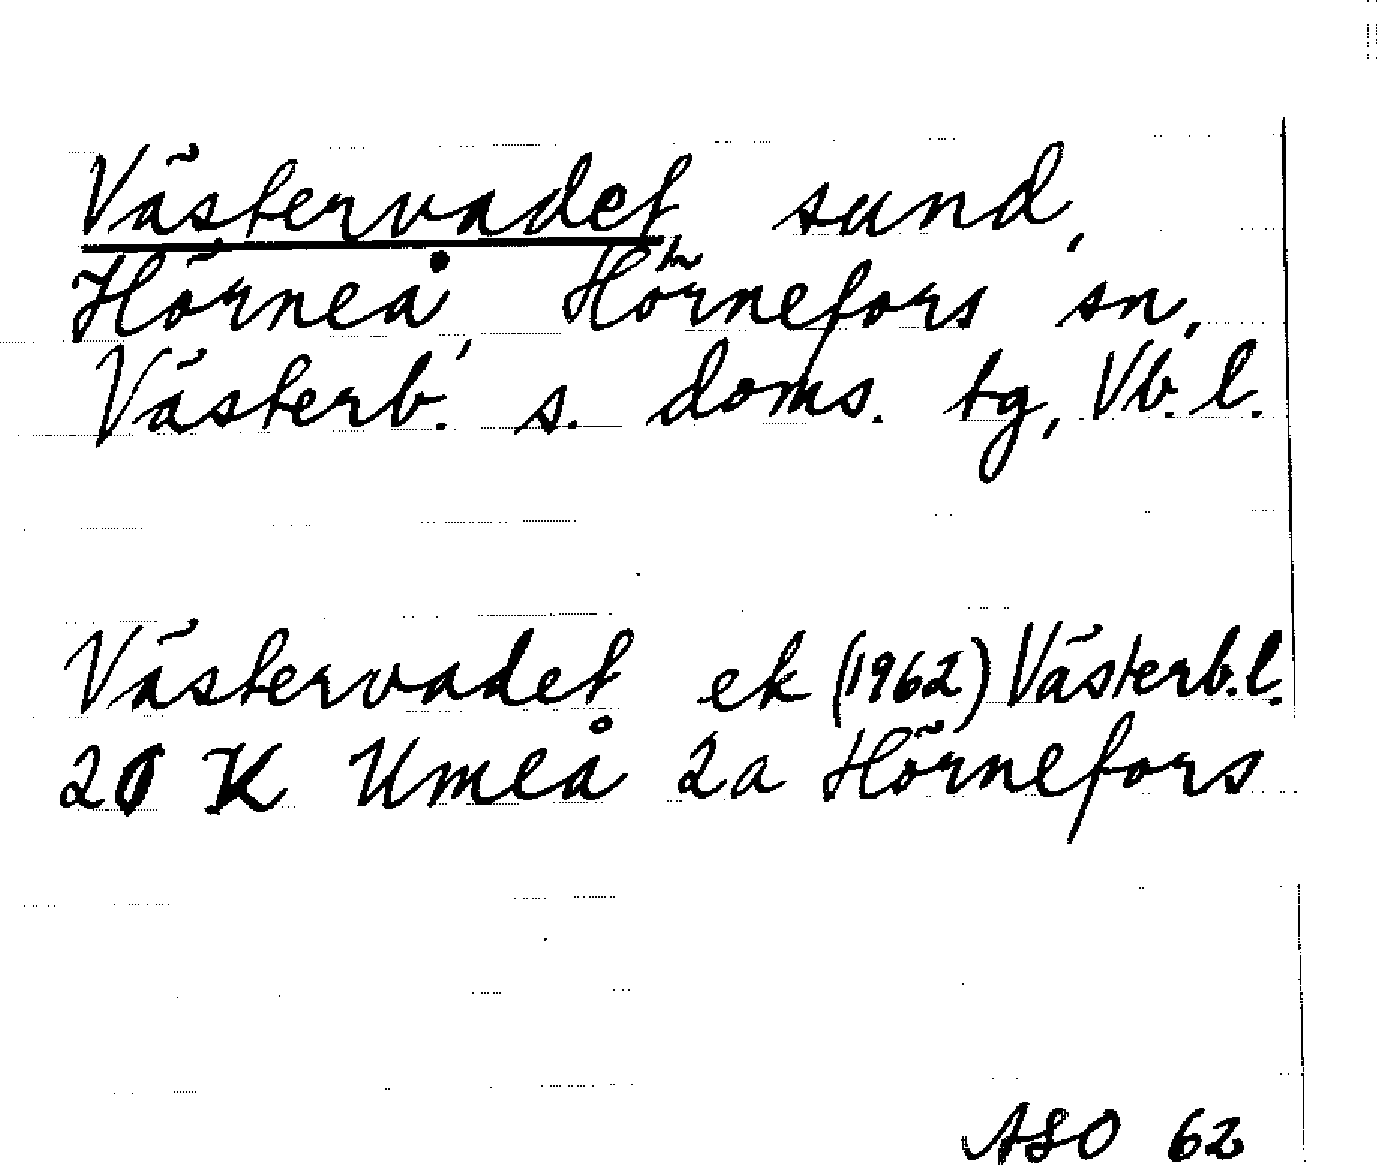 Västervadet, sund,
Hörneå, Hörnefors sn,
Västerb. s. doms. tg, Vb. l.
Västervadet ek (1962) Västerb.l.
20 K Umeå 2a Hörnefors
ASO 62